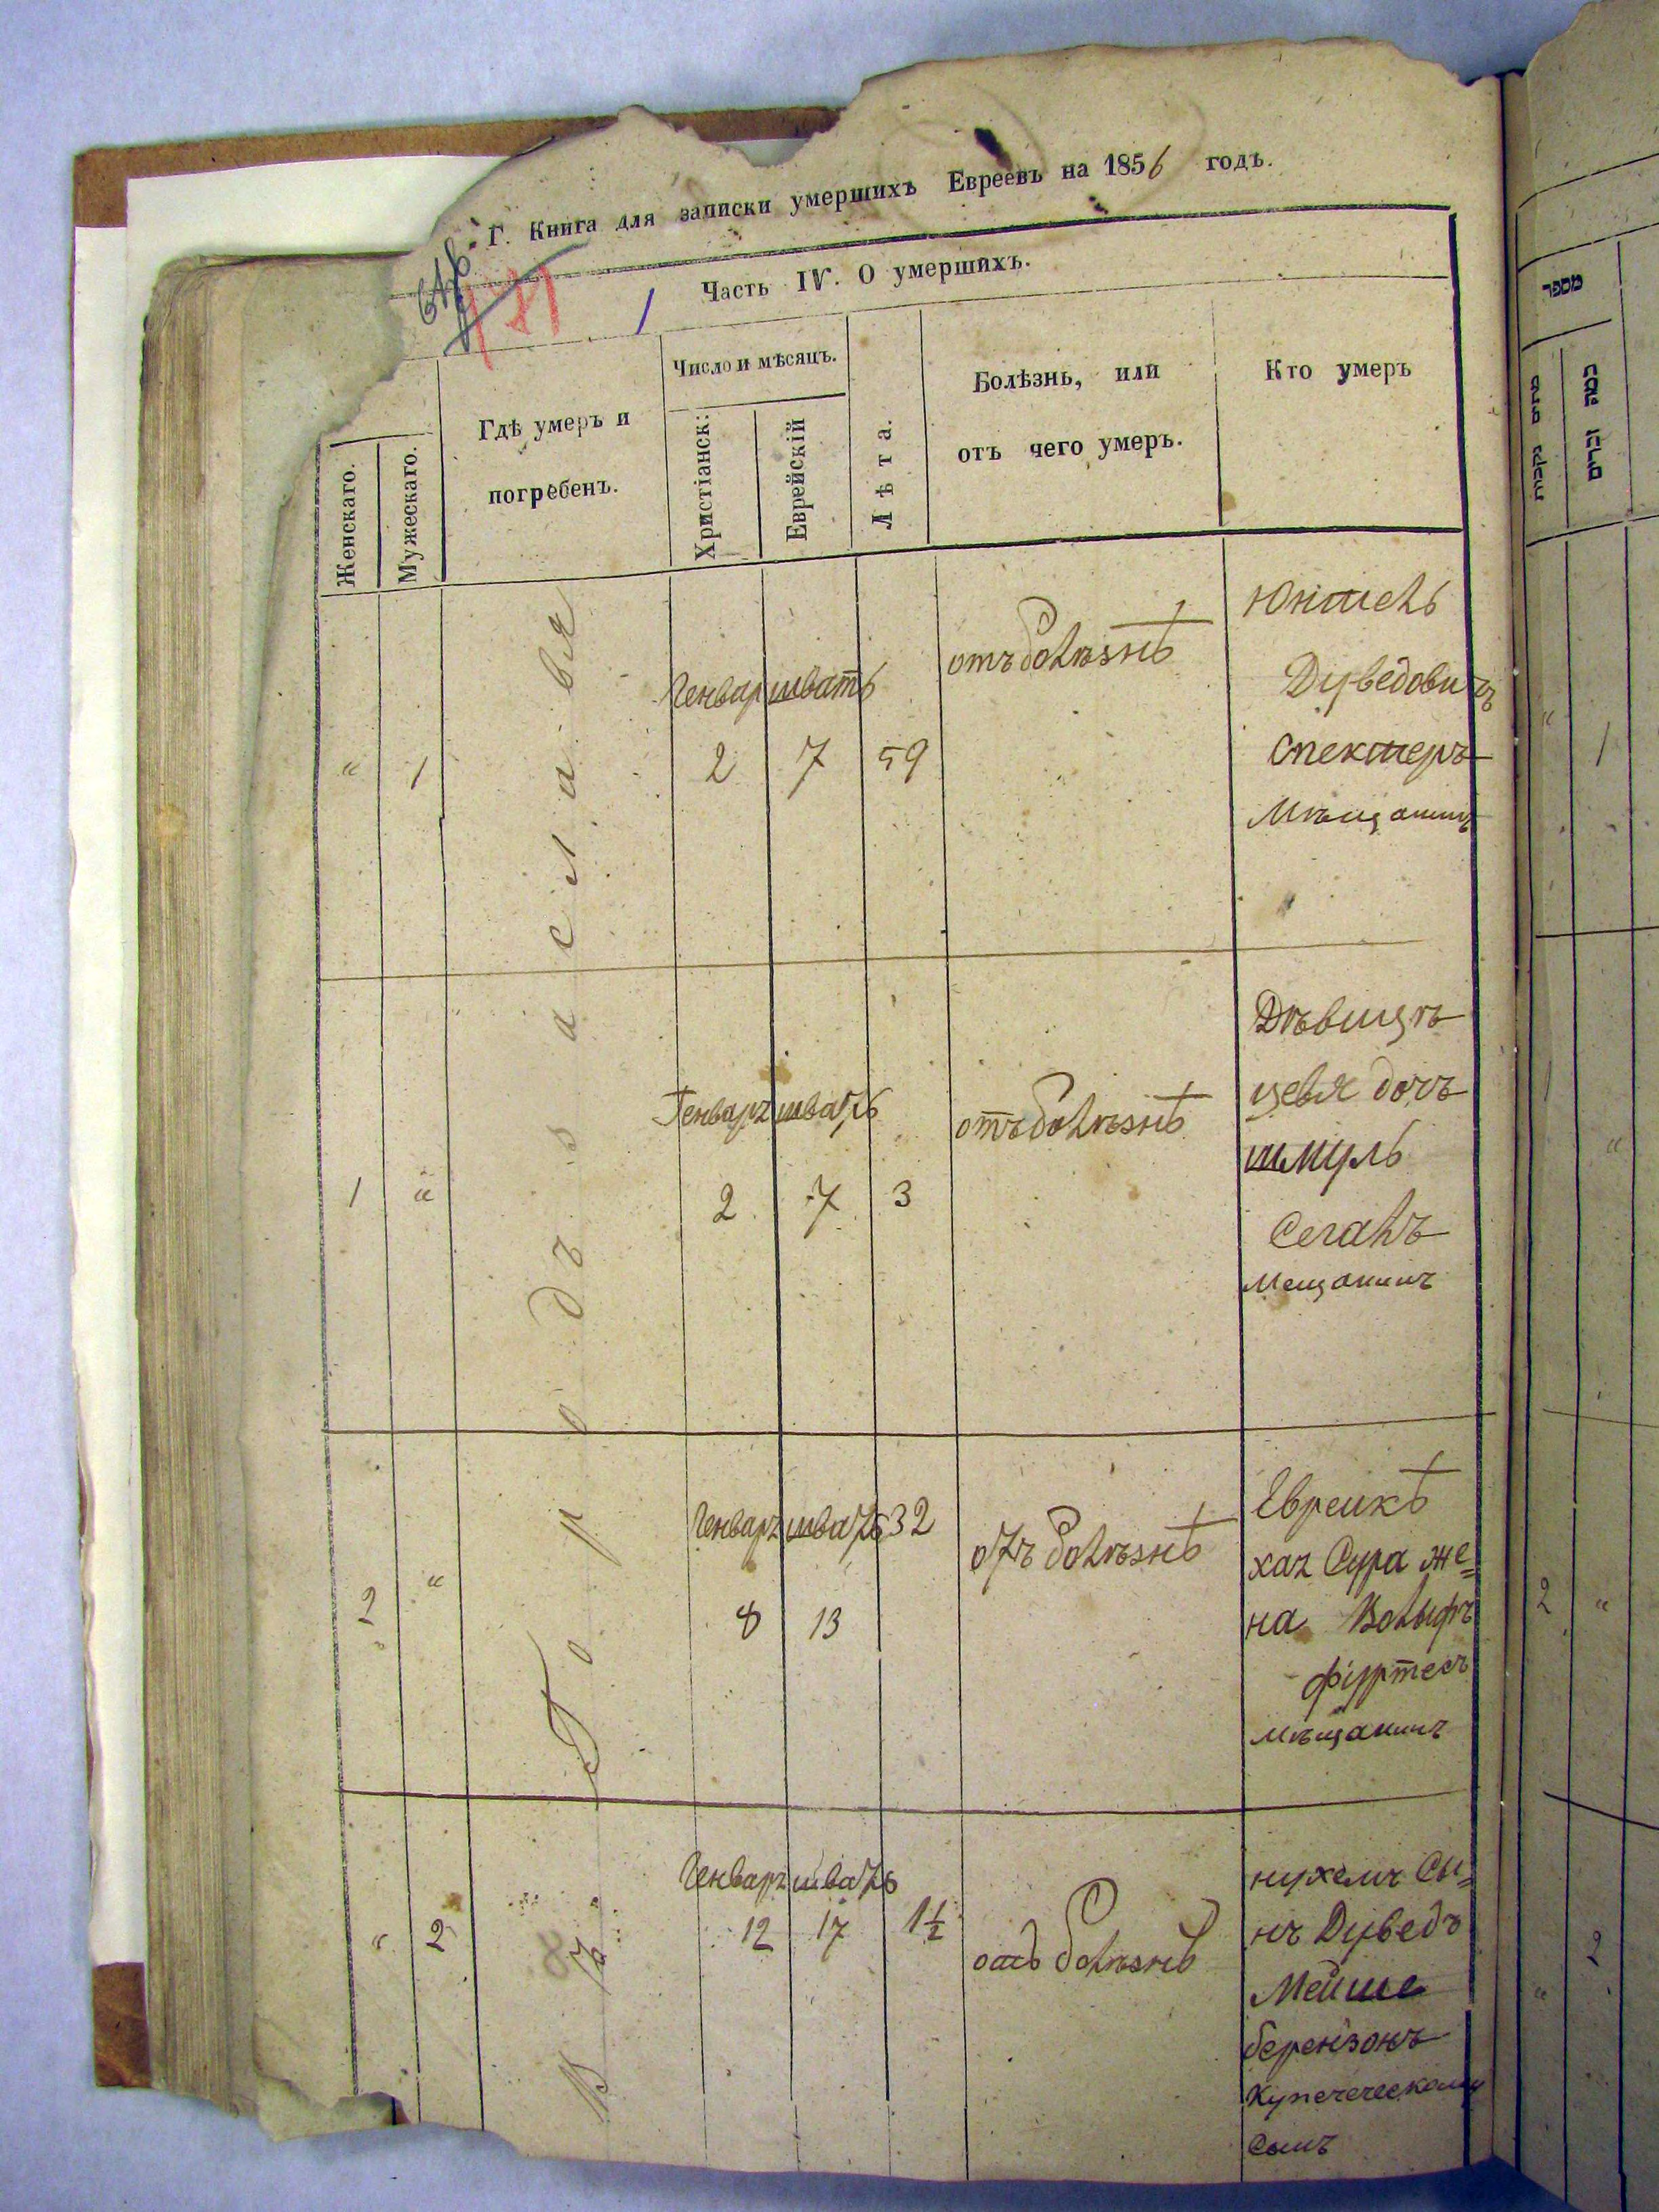 Г. Книга для записки умершихъ Евреевъ на 1856 годъ.
1
Часть IV. О умершихъ.
Женскаго.
Мужескаго.
Гдѣ умеръ и
погребенъ.
Число и мѣсяцъ.
Христіанск:
Еврейскій
Лѣта.
Болѣзнь, или
отъ чего умеръ.
Кто умеръ
Городъ Заславля
" 1
Генвар шватъ
2 7 59
отъ болѣзнѣ
Юкшель
Дуведовичъ
Спекшеръ
Мѣщанинъ
1 "
Генваръ шватъ
2 7 3
отъ болѣзнѣ
Дѣвицѣ
цевя дочъ
шмуль
Сегалъ
Мещанинъ
2 "
Генваръ шватъ 32
8 13
отъ болѣзнѣ
Евреикѣ
хая Сура же=
на Вольфъ
фуртесъ
мѣщанинъ
" 2
Генваръ шватъ
12 17 1½
отъ болѣзнѣ
нухемъ Сы=
нъ Дуведъ
Мейше
берензонъ
Купеческому
Сынъ
מספר
נקבות
זכרים
" 1
1 "
2 "
" 2